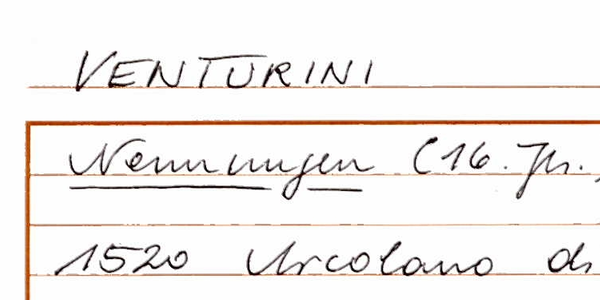 VENTURINI
Nennungen (16. Jh.,
1520 Arcolano di